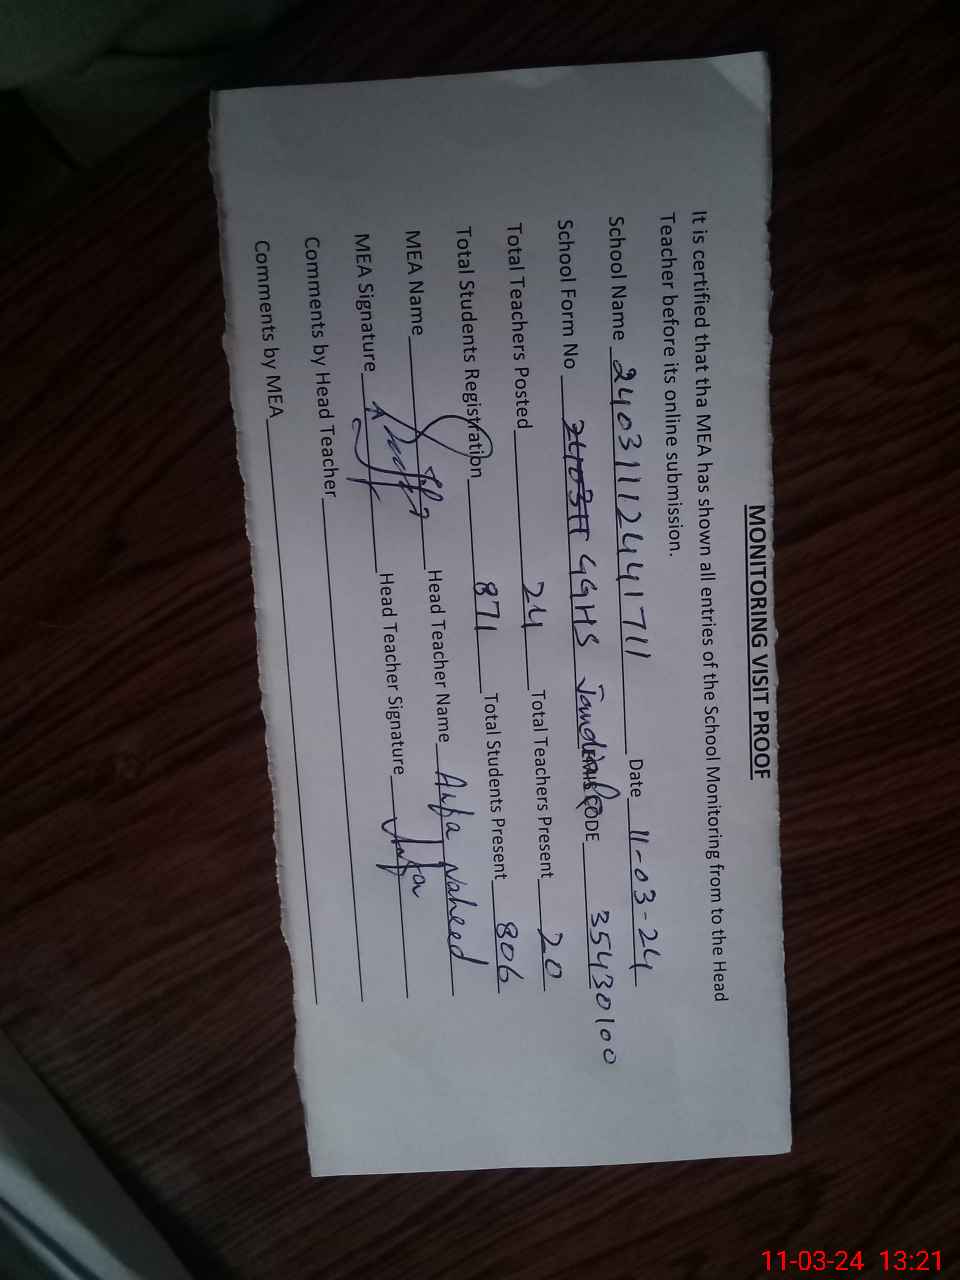 MONITORING VISIT PROOF
It is certified that tha MEA has shown all entries of the School Monitoring from to the Head
Teacher before its online submission.
School Name 2403111244171 11 Date 11-03-24
School Form No 240311 GGHS Jandiala CODE 35430100
Total Teachers Posted 24 Total Teachers Present 20
Total Students Registration 871 Total Students Present 806
MEA Name Head Teacher Name Anfa Naheed
MEA Signature Head Teacher Signature Anfa
Comments by Head Teacher
Comments by MEA
11-03-24 13:21